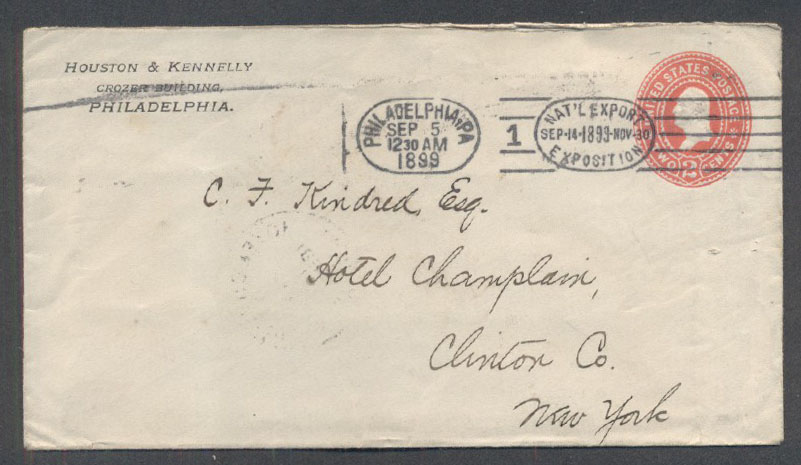 HOUSTON & KENNELLY
CROZER BUILDING,
PHILADELPHIA.
PHILADELPHIA, PA
SEP 5
12 30 AM
1899
1
NAT'L EXPORT
SEP-14-1899-NOV-30
EXPOSITION
UNITED STATES POSTAGE
TWO 2 CENTS
C. F. Kindred, Esq.
Hotel Champlain,
Clinton Co.
New York